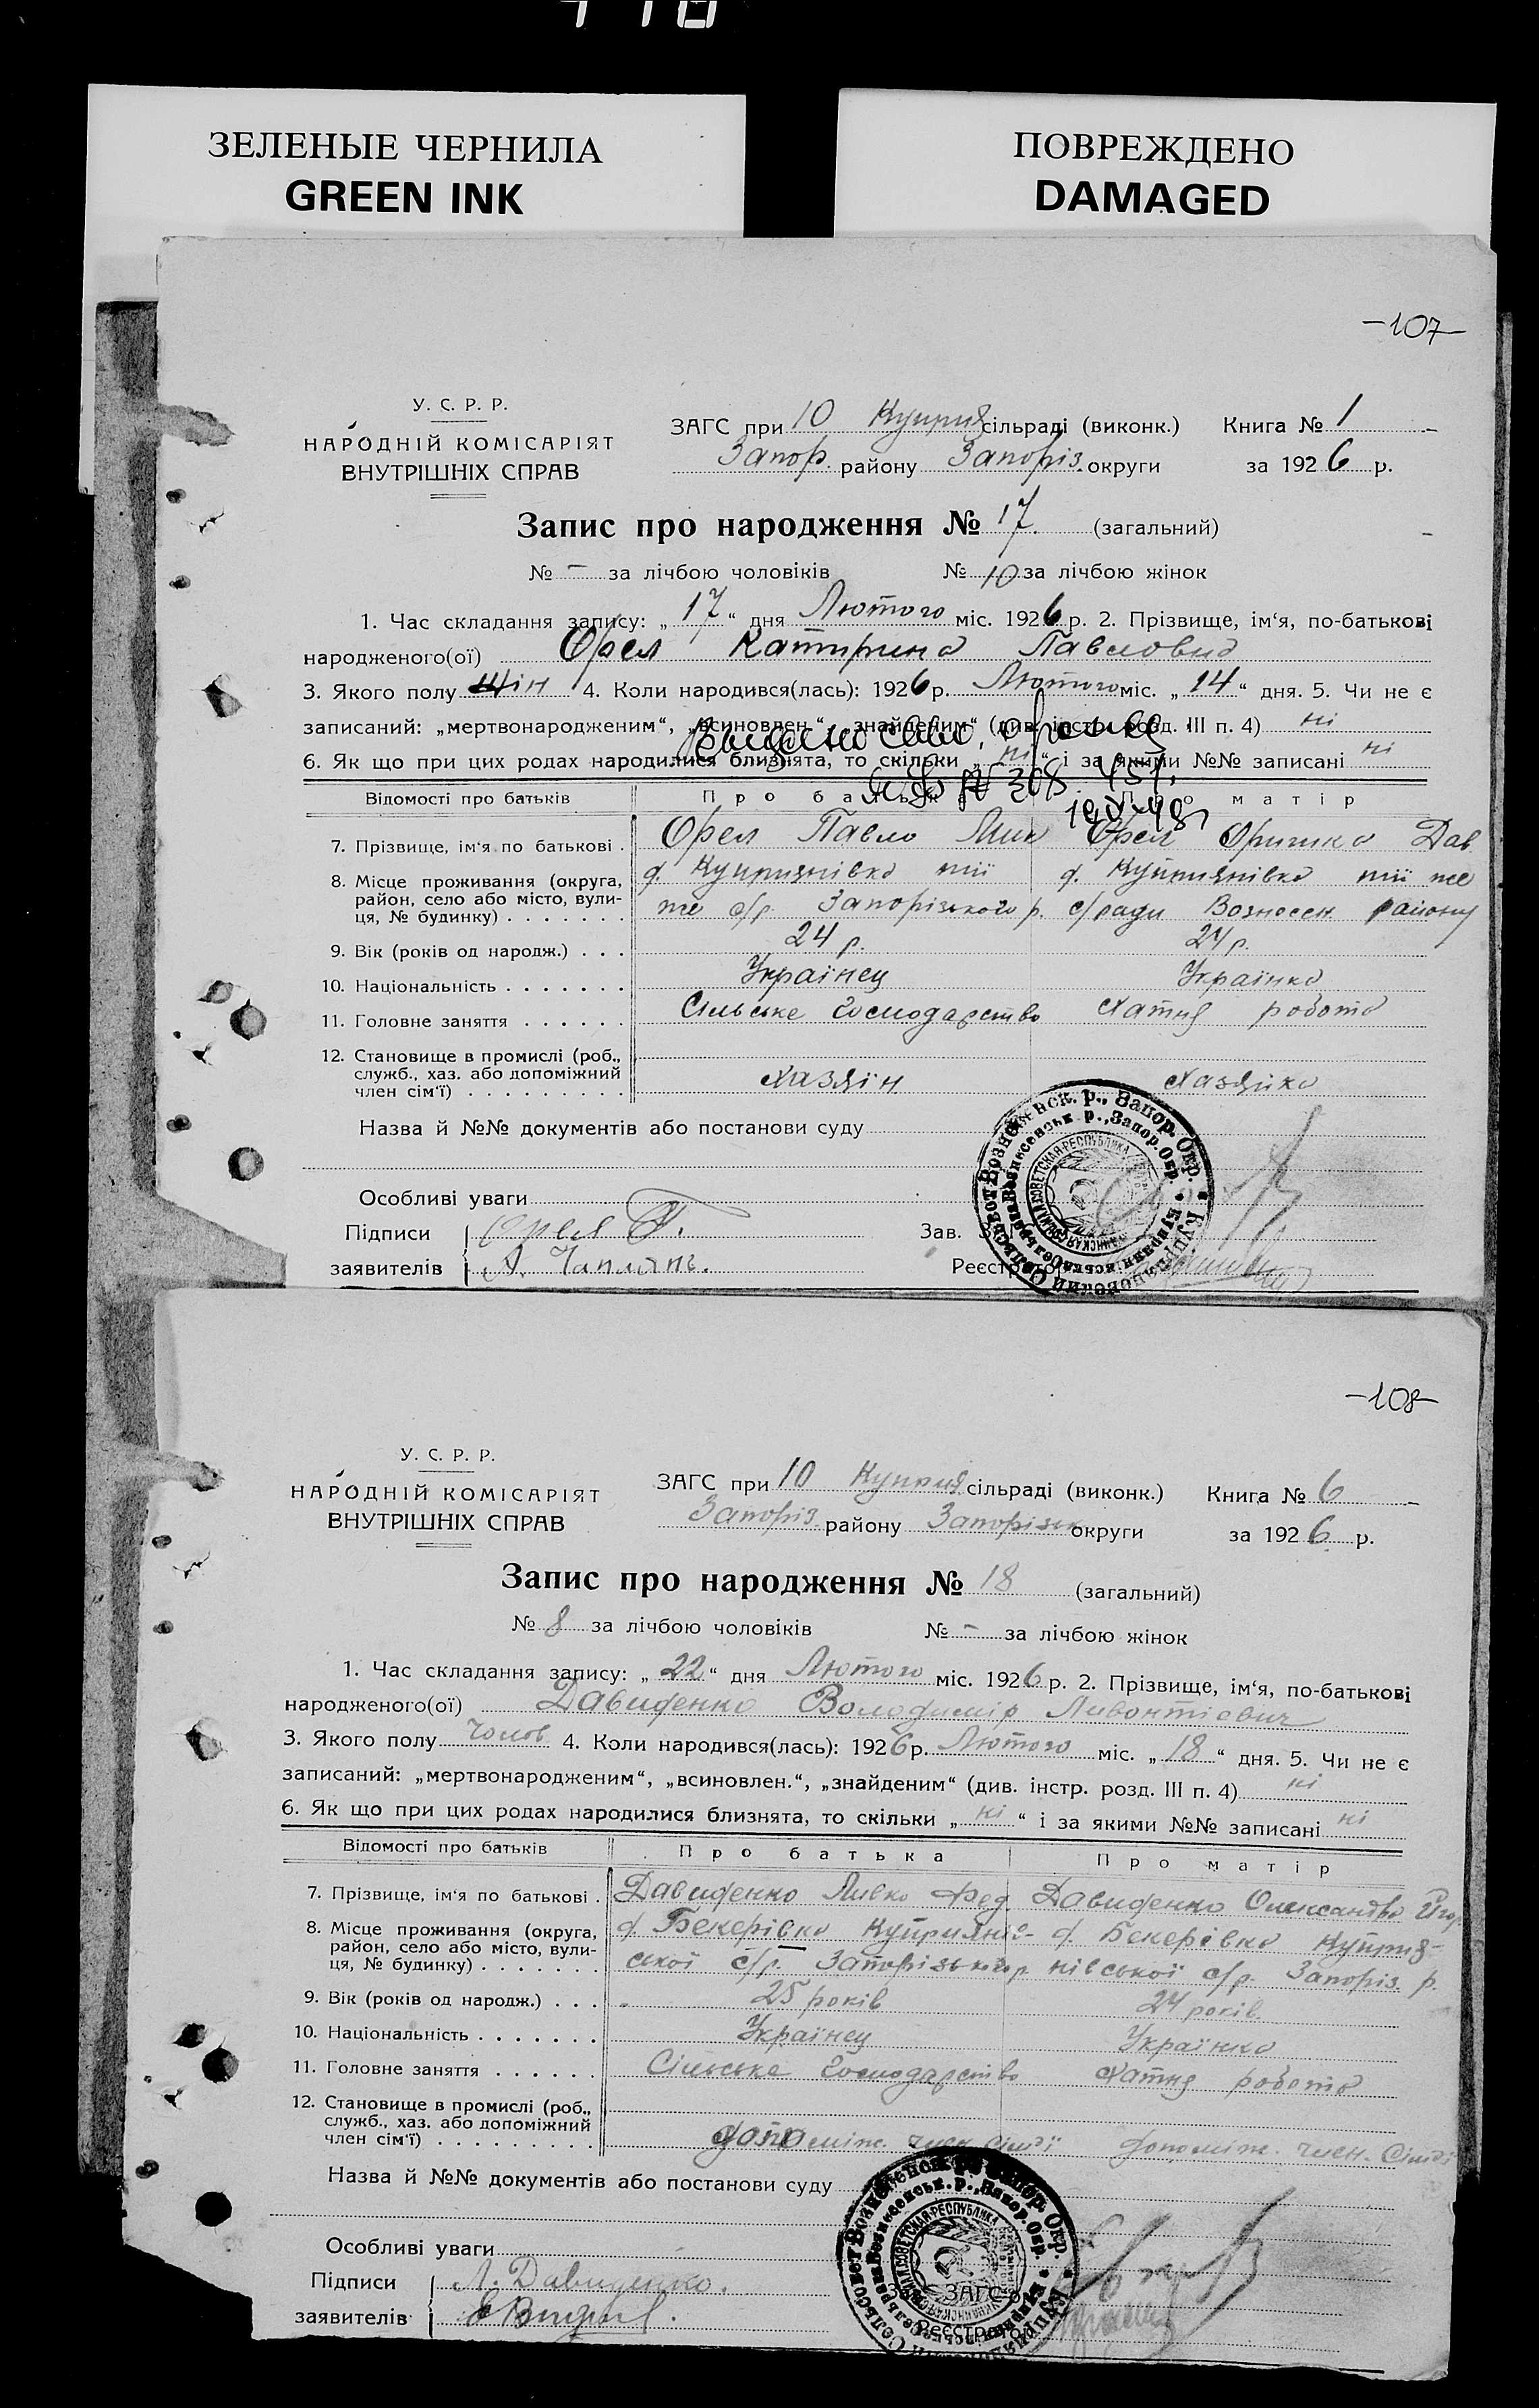 ЗЕЛЕНЫЕ ЧЕРНИЛА
GREEN INK
ПОВРЕЖДЕНО
DAMAGED
-107-
У. С. Р. Р.
НАРОДНІЙ КОМІСАРІЯТ
ВНУТРІШНІХ СПРАВ
ЗАГС при 10 Куприя сільраді (виконк.) Книга № 1
Запор. району Запоріз. округи за 1926 р.
Запис про народження № 17. (загальний)
№ - за лічбою чоловіків № 10 за лічбою жінок
1. Час складання запису: „17“ дня Лютого міс. 1926 р. 2. Прізвище, ім'я, по-батькові
народженого(ої) Орел Катирина Павловна
3. Якого полу жін 4. Коли народився(лась): 1926 р. Лютого міс. „14“ дня. 5. Чи не є
записаний: „мертвонародженим“, „всиновлен.“, „знайденим“ (див. інстр. розд. III п. 4) ні
6. Як що при цих родах народилися близнята, то скільки „ні“ і за якими №№ записані ні
Відомості про батьків Про батька Про матір
7. Прізвище, ім'я по батькові . Орел Павло Мик Орел Оришка Дав
8. Місце проживання (округа, д. Куприянівка тії д. Куприянівка тії же
район, село або місто, вули- же с/р. Запорізького р. с/ради Вознесен. району
ця, № будинку)
9. Вік (років од народж.) . . . 24 р. 24 р.
10. Національність Українец Українка
11. Головне заняття Сільське господарство Хатня робота
12. Становище в промислі (роб.,
служб., хаз. або допоміжний
член сім'ї) Хазяін Хазяйка
Назва й №№ документів або постанови суду
Особливі уваги
Підписи Орел П.
заявителів
Зав.
Реєстратор
-108-
У. С. Р. Р.
НАРОДНІЙ КОМІСАРІЯТ
ВНУТРІШНІХ СПРАВ
ЗАГС при 10 Куприя сільраді (виконк.) Книга № 6
Запоріз. району Запорізьк округи за 1926 р.
Запис про народження № 18 (загальний)
№ 8 за лічбою чоловіків № - за лічбою жінок
1. Час складання запису: „22“ дня Лютого міс. 1926 р. 2. Прізвище, ім'я, по-батькові
народженого(ої) Давиденко Володимір Ливонтіевич
3. Якого полу Чолов 4. Коли народився(лась): 1926 р. Лютого міс. „18“ дня. 5. Чи не є
записаний: „мертвонародженим“, „всиновлен.“, „знайденим“ (див. інстр. розд. III п. 4) ні
6. Як що при цих родах народилися близнята, то скільки „ні“ і за якими №№ записані ні
Відомості про батьків Про батька Про матір
7. Прізвище, ім'я по батькові . Давиденко Ливко Фед. Давиденко Олександра
8. Місце проживання (округа, д. Бекерівка Куприянів- д. Бекерівка Куприя-
район, село або місто, вули- ської с/р. Запорізького р. нівської с/р. Запоріз. р.
ця, № будинку)
9. Вік (років од народж.) . . . 25 років 24 років
10. Національність Українец Українка
11. Головне заняття Сільське господарство Хатня робота
12. Становище в промислі (роб.,
служб., хаз. або допоміжний
член сім'ї) допоміж. член сімъї допоміж. член. сімъї
Назва й №№ документів або постанови суду
Особливі уваги
Підписи Л. Давиденко.
заявителів
ЗАГС
Реєстратор